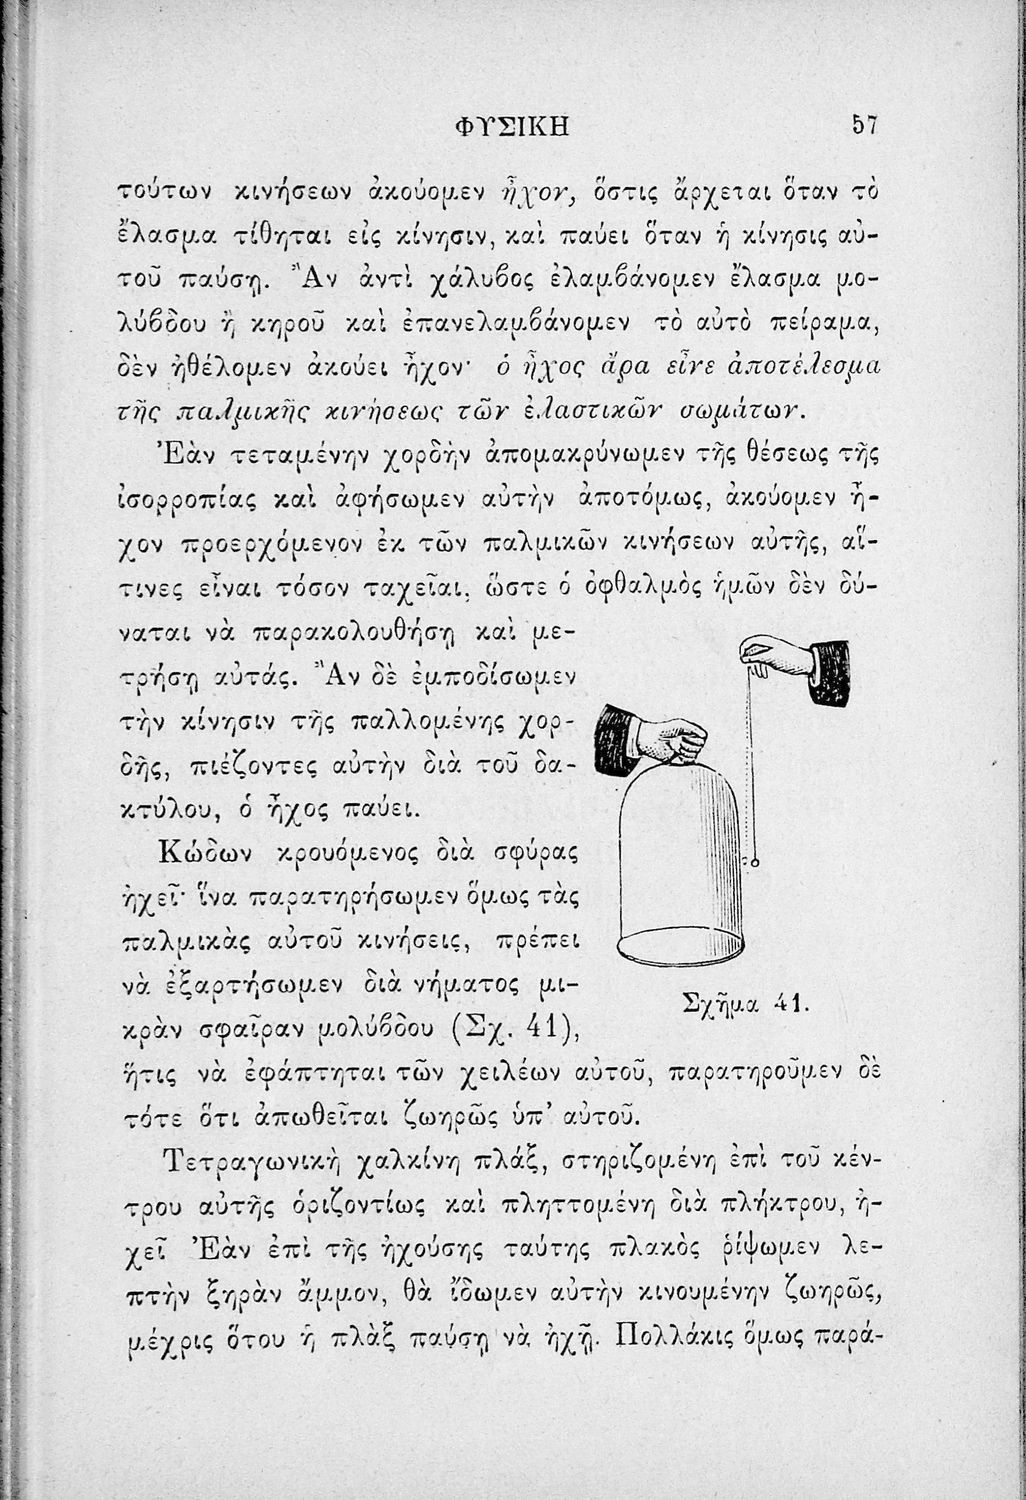 ΦΥΣΙΚΗ 57
τούτων κινήσεων ἀκούομεν ἦχον, ὅστις ἄρχεται ὅταν τὸ
ἔλασμα τίθηται εἰς κίνησιν, καὶ παύει ὅταν ἡ κίνησις αὐ-
τοῦ παύσῃ. Ἂν ἀντὶ χάλυβος ἐλαμβάνομεν ἔλασμα μο-
λύβδου ἢ κηροῦ καὶ ἐπανελαμβάνομεν τὸ αὐτὸ πείραμα,
δὲν ἠθέλομεν ἀκούει ἦχον· ὁ ἦχος ἄρα εἶνε ἀποτέλεσμα
τῆς παλμικῆς κινήσεως τῶν ἐλαστικῶν σωμάτων.
Ἐὰν τεταμένην χορδὴν ἀπομακρύνωμεν τῆς θέσεως τῆς
ἰσορροπίας καὶ ἀφήσωμεν αὐτὴν ἀποτόμως, ἀκούομεν ἦ-
χον προερχόμενον ἐκ τῶν παλμικῶν κινήσεων αὐτῆς, αἵ-
τινες εἶναι τόσον ταχεῖαι, ὥστε ὁ ὀφθαλμὸς ἡμῶν δὲν δύ-
ναται νὰ παρακολουθήσῃ καὶ με-
τρήσῃ αὐτάς. Ἂν δὲ ἐμποδίσωμεν
τὴν κίνησιν τῆς παλλομένης χορ-
δῆς, πιέζοντες αὐτὴν διὰ τοῦ δα-
κτύλου, ὁ ἦχος παύει.
Κώδων κρουόμενος διὰ σφύρας
ἠχεῖ· ἵνα παρατηρήσωμεν ὅμως τὰς
παλμικὰς αὐτοῦ κινήσεις, πρέπει
νὰ ἐξαρτήσωμεν διὰ νήματος μι-
κρὰν σφαῖραν μολύβδου (Σχ. 41),
Σχῆμα 41.
ἥτις νὰ ἐφάπτηται τῶν χειλέων αὐτοῦ, παρατηροῦμεν δὲ
τότε ὅτι ἀπωθεῖται ζωηρῶς ὑπ’ αὐτοῦ.
Τετραγωνικὴ χαλκίνη πλάξ, στηριζομένη ἐπὶ τοῦ κέν-
τρου αὐτῆς ὁριζοντίως καὶ πληττομένη διὰ πλήκτρου, ἠ-
χεῖ Ἐὰν ἐπὶ τῆς ἠχούσης ταύτης πλακὸς ῥίψωμεν λε-
πτὴν ξηρὰν ἄμμον, θὰ ἴδωμεν αὐτὴν κινουμένην ζωηρῶς,
μέχρις ὅτου ἡ πλὰξ παύσῃ νὰ ἠχῇ. Πολλάκις ὅμως παρά-